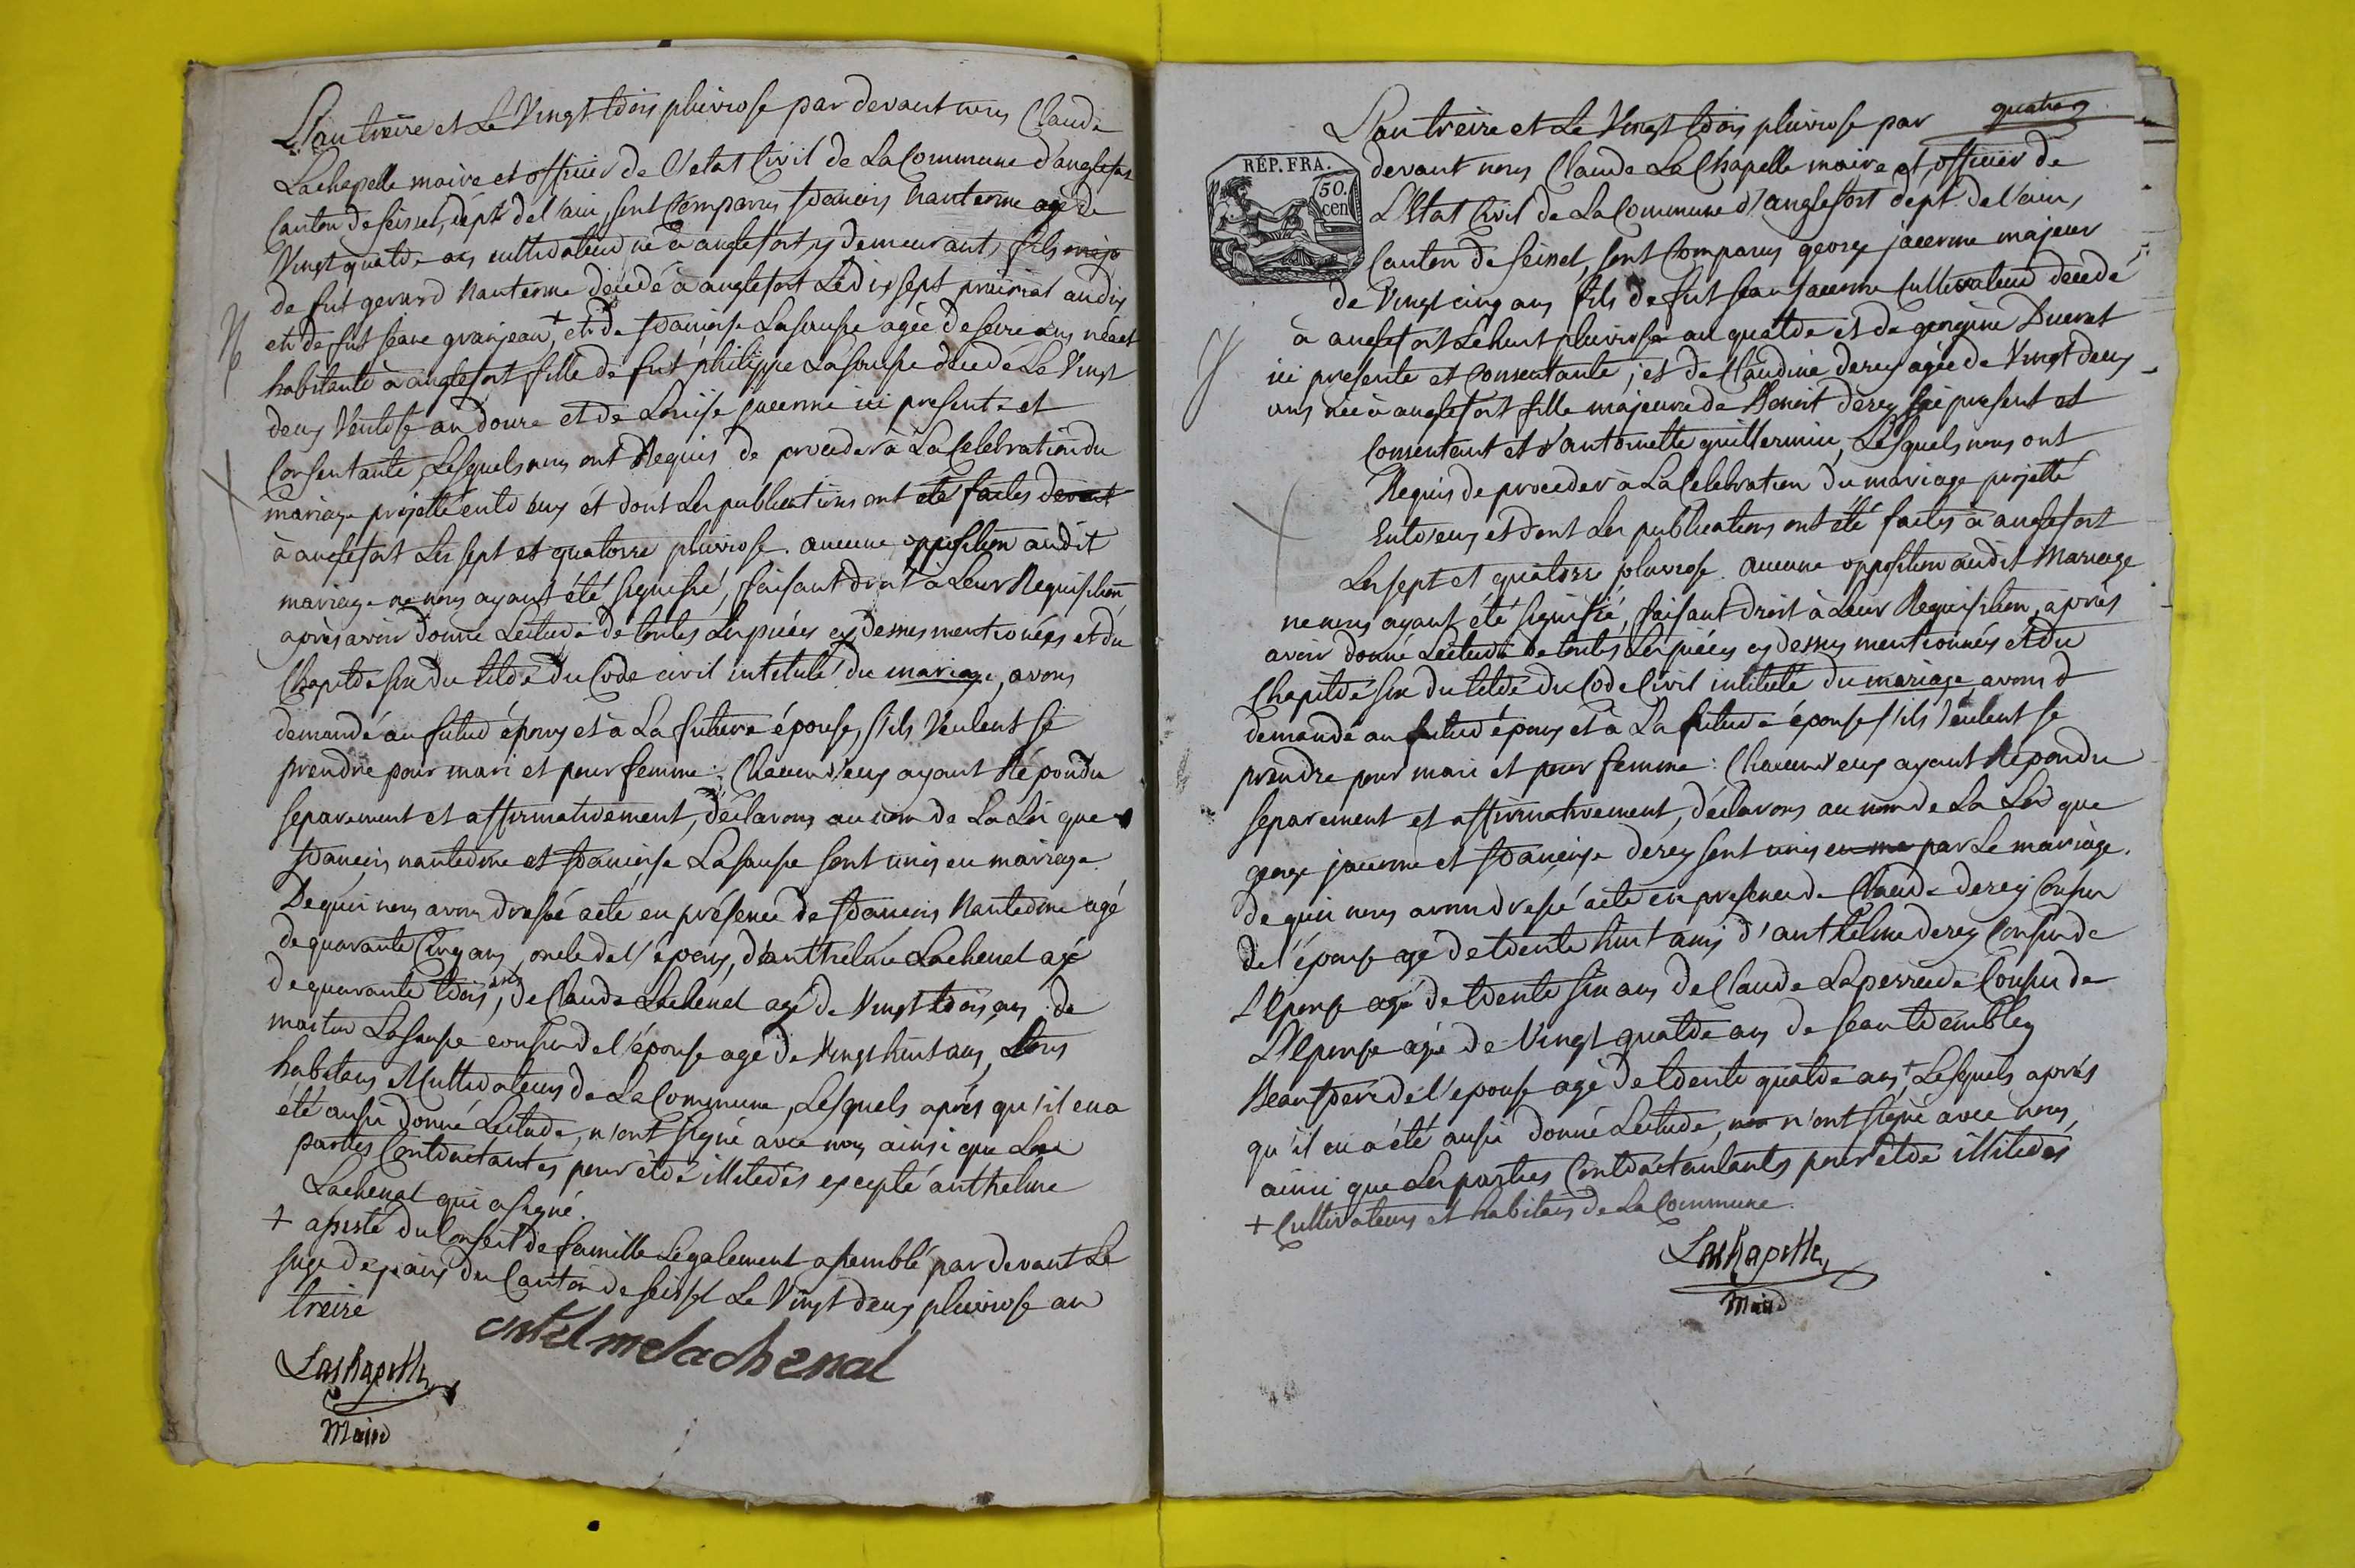 L'an treize et le Vingt trois pluviose par devant nous Claude
Lachapelle maire et officier de l'etat Civil de La Commune d'anglefort
Canton de seissel, dépt de l'ain, sont Comparus francois nanterme agé de
Vingt quatre ans cultivateur né à anglefort y demeurant, fils
de fut gerard nanterme décédé à anglefort Le dix sept prairial an dix
et de fut jeane granjean + et de francoise Lasauspe agée de seize ans née et
habitante à anglefort fille de fut philippe Lasauspe décédé Le Vingt
deux Ventose an douze et de Louise jacerme ici presente et
Consentante, Lesquels nous ont Requis de proceder à La Celebration du
mariage projetté entr'eux et dont Les publications ont été faites devant
à anglefort Les sept et quatorze pluviose. aucune opposition audit
mariage ne nous ayant été signifié, faisant droit à Leur Requisition
après avoir donné Lecture de toutes Les pièces cy dessus mentionées et du
Chapitre six du titre du Code civil intitulé du mariage, avons
demandé au futur époux et à La future épouse, s'ils Veulent se
prendre pour mari et pour femme : Chacun d'eux ayant Répondu
separement et affirmativement, déclarons au nom de La Loi que
francois nanterme et francoise Lasauspe sont unis en mariage
De quoi nous avons dressé acte en présence de francois Nanterme agé
de quarante Cinq ans, oncle de l'époux, d'anthelme Lachenal agé
de quarante trois ans, de Claude Lachenal agé de Vingt trois ans de
martin Lasauspe cousin de l'épouse agé de Vingt huit ans, tous
habitans et Cultivateurs de La Commune, Lesquels après qu'il en a
été aussi donné Lecture, n'ont signé avec nous ainsi que Les
parties Contractantes pour être illitérés excepté anthelme
Lachenal qui a signé.
+ assisté du Conseil de famille Légalement assemblé par devant Le
juge de paix du Canton de seissel Le Vingt deux pluviose an
treize
antelme lachenal
Lachapelle
Maire
quatre
L'an treize et Le Vingt trois pluviose par
RÉP. FRA.
50. cen
devant nous Claude La Chapelle maire et officier de
L'Etat Civil de La Commune d'anglefort dépt de l'ain,
Canton de seissel, sont Comparus george jacerme majeur
de Vingt cinq ans fils de fut jean jacerme Cultivateur décédé
à anglefort Le huit pluviose an quatre et de gorgine Ducret
ici presente et Consentante ; et de Claudine derey agée de Vingt deux
ans née à anglefort fille majeure de Benoit derey ici present et
Consentant et d'antoinette guillermin, Lesquels nous ont
Requis de proceder à La Celebration du mariage projetté
Entr'eux et dont Les publications ont été faites à anglefort
Les sept et quatorze pluviose. Aucune opposition audit Mariage
ne nous ayant été signifié, faisant droit à Leur Requisition, après
avoir donné Lecture de toutes Les pièces cy dessus mentionnées et du
Chapitre six du titre du Code Civil intitulé du mariage, avons
demandé au futur époux et à La future épouse s'ils Veulent se
prendre pour mari et pour femme : Chacun d'eux ayant Répondu
separement et affirmativement, déclarons au nom de La Loi que
george jacerme et francoise derey sont unis en ma par Le mariage.
de quoi nous avons dressé acte en presence de Claude derey Cousin
de l'épouse agé de trente huit ans, d'anthelme derey Cousin de
L'Epouse agé de trente six ans de Claude Laperrouse Cousin de
L'Epouse agé de Vingt quatre ans de jean trembley
Beaufrere de l'epouse agé de trente quatre ans + Lesquels après
qu'il en a été aussi donné Lecture, n'ont signé avec nous,
ainsi que Les parties Contractantes pour être illiterés
+ Cultivateurs et habitans de La Commune.
Lachapelle
Maire